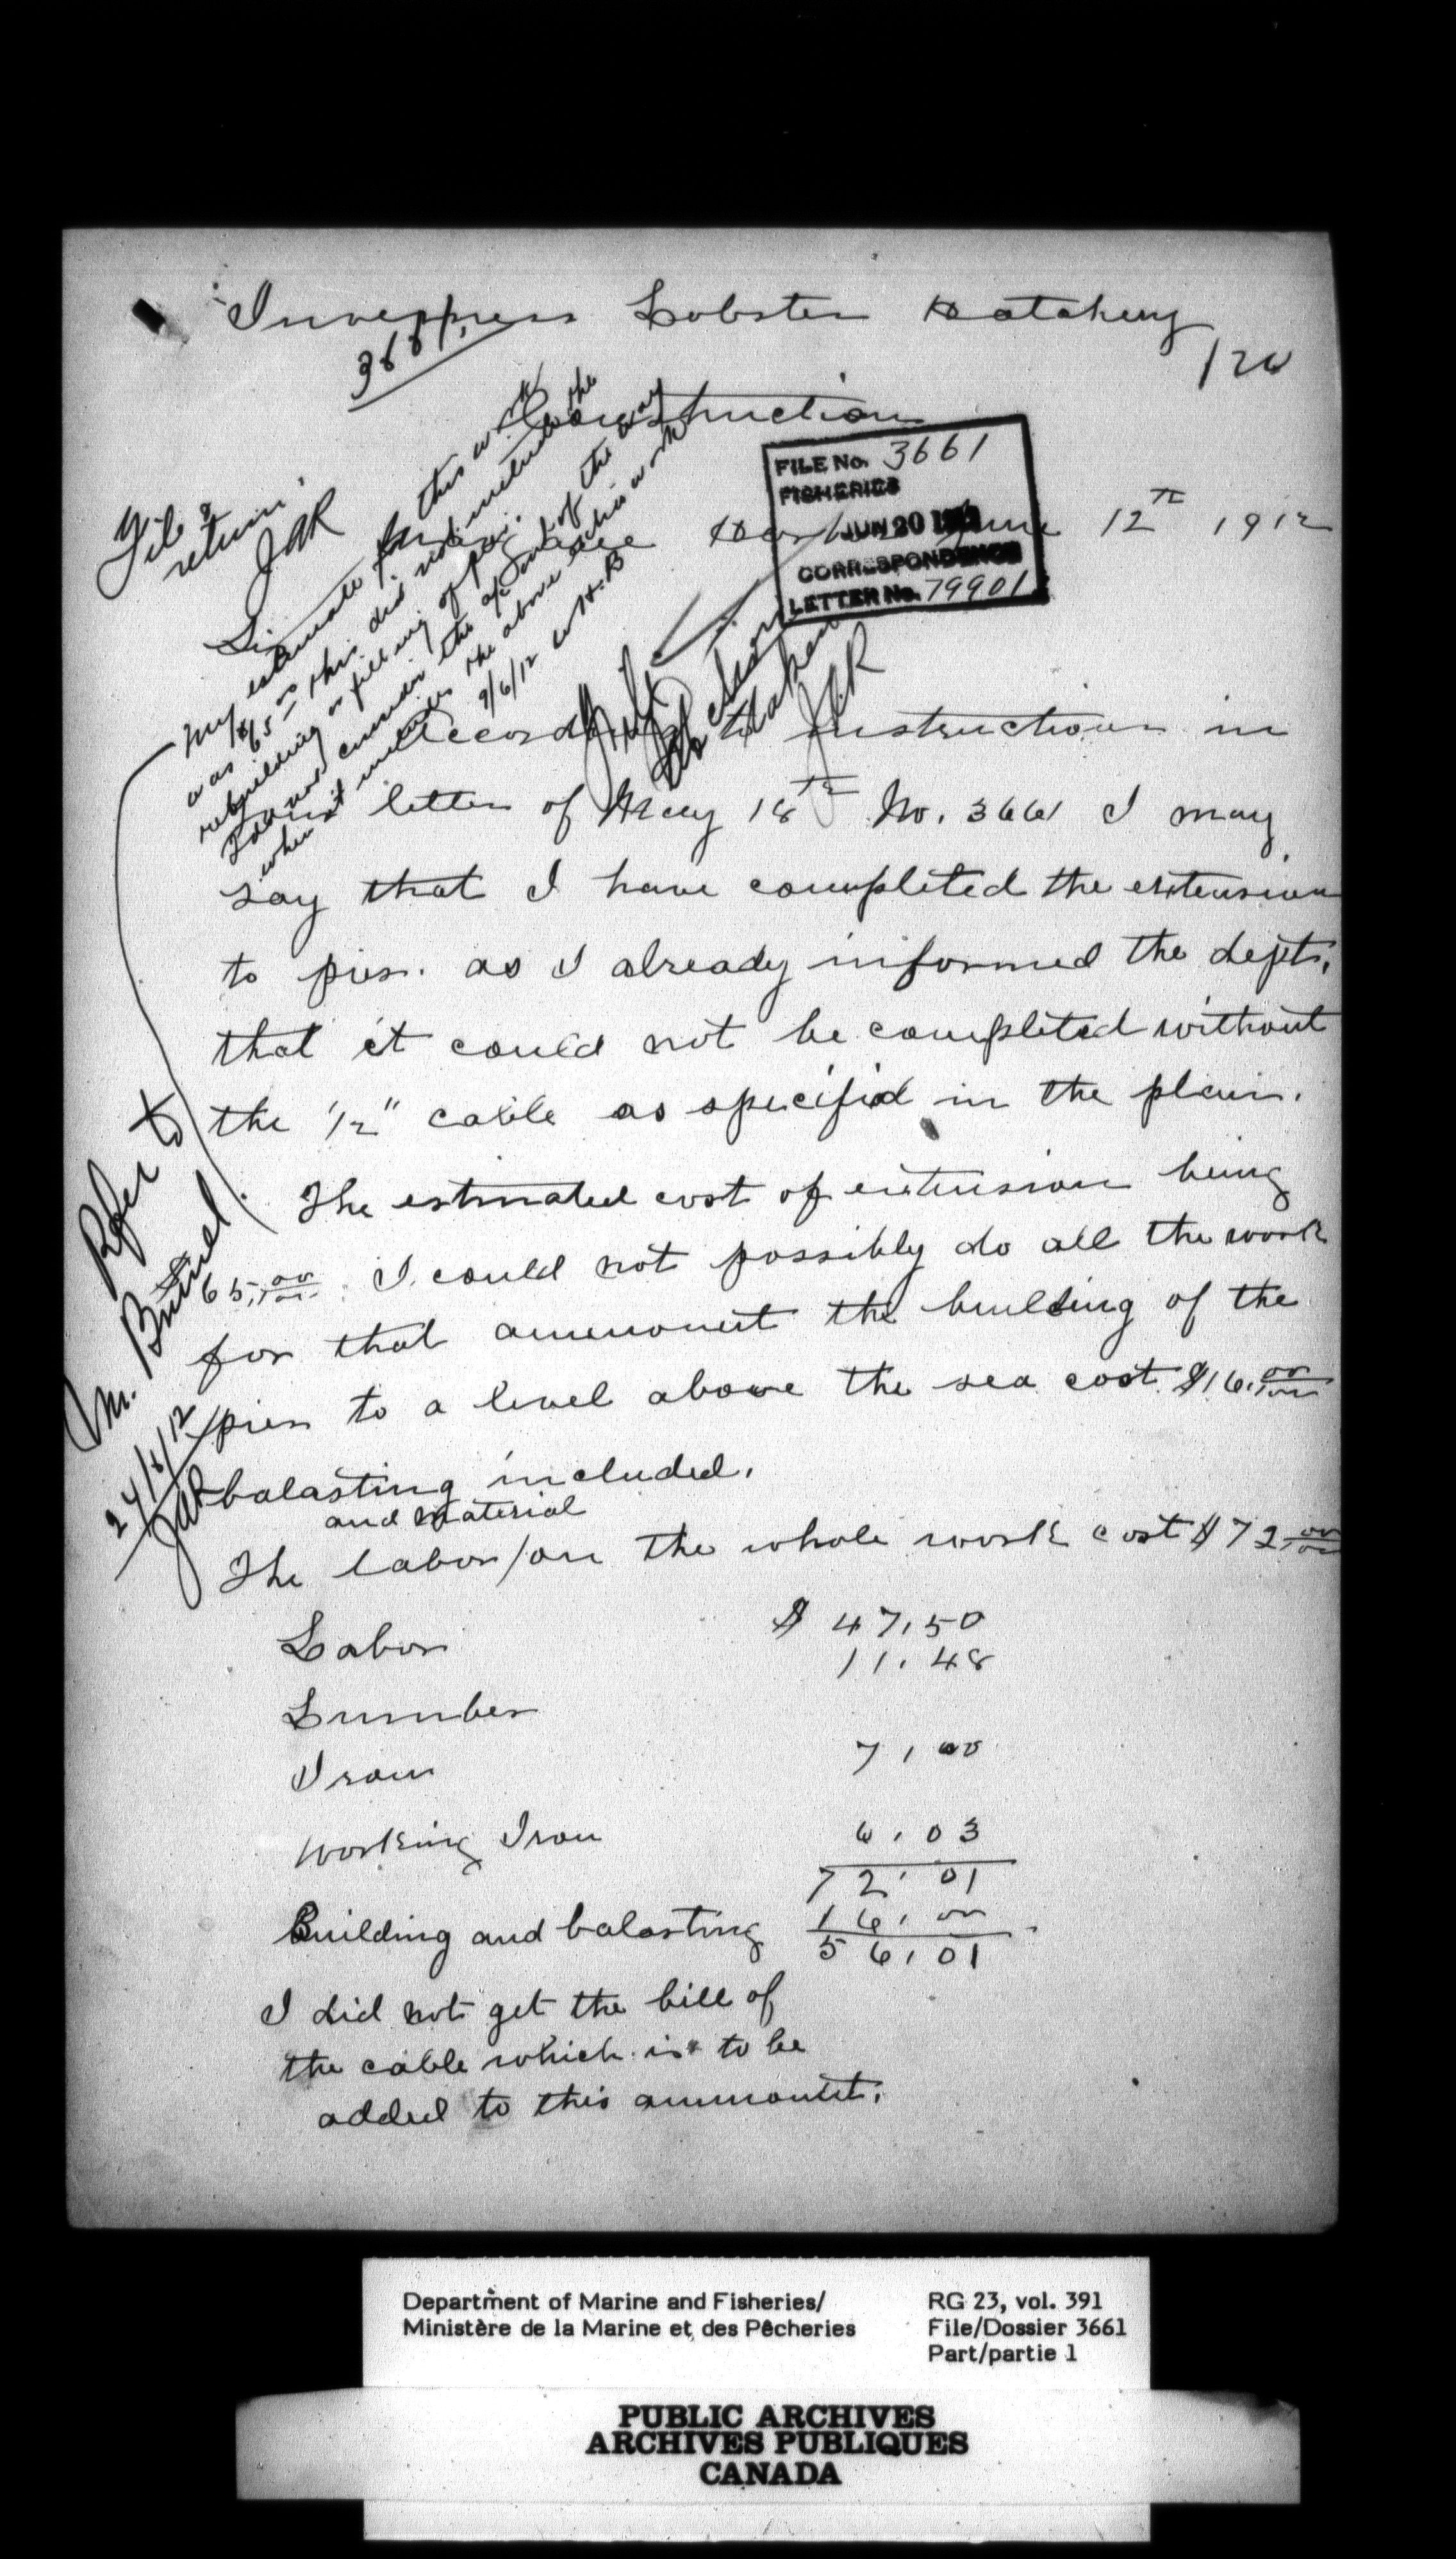 Inverness Lobster Hatchery
3661
126
Construction
FILE No. 3661
FISHERIES
JUN 20 1912
CORRESPONDENCE
LETTER No. 79901
Harbour June 12th 1912
File &
return
JAR
Sir
My estimate for this work
was $65 as this did not include the
rebuilding or filling of pier.
I do not consider the amount of the
when it includes the above extra work
9/6/12 W.H.B
taken
JAR
According to Instructions in
letter of May 18th No. 3661 I may
say that I have completed the extension
to pier. as I already informed the dept,
that it could not be completed without
the 1/2" cable as specifid in the plan.
The estimated cost of extension being
$65,00/100. I could not possibly do all the work
for that ammount the building of the
pier to a level above the sea cost $16,00/100
balasting included.
and material
The labor/on the whole work cost $72,00/100
Refer to
Mr. Bunel
24/6/12
JAR
Labor $47,50
11.48
Lumber
Iron 7,00
Working Iron 6,03
72,01
Building and balasting 16,00
56,01
I did not get the bill of
the cable which is to be
added to this ammount,
Department of Marine and Fisheries/
Ministère de la Marine et des Pêcheries
RG 23, vol. 391
File/Dossier 3661
Part/partie 1
PUBLIC ARCHIVES
ARCHIVES PUBLIQUES
CANADA